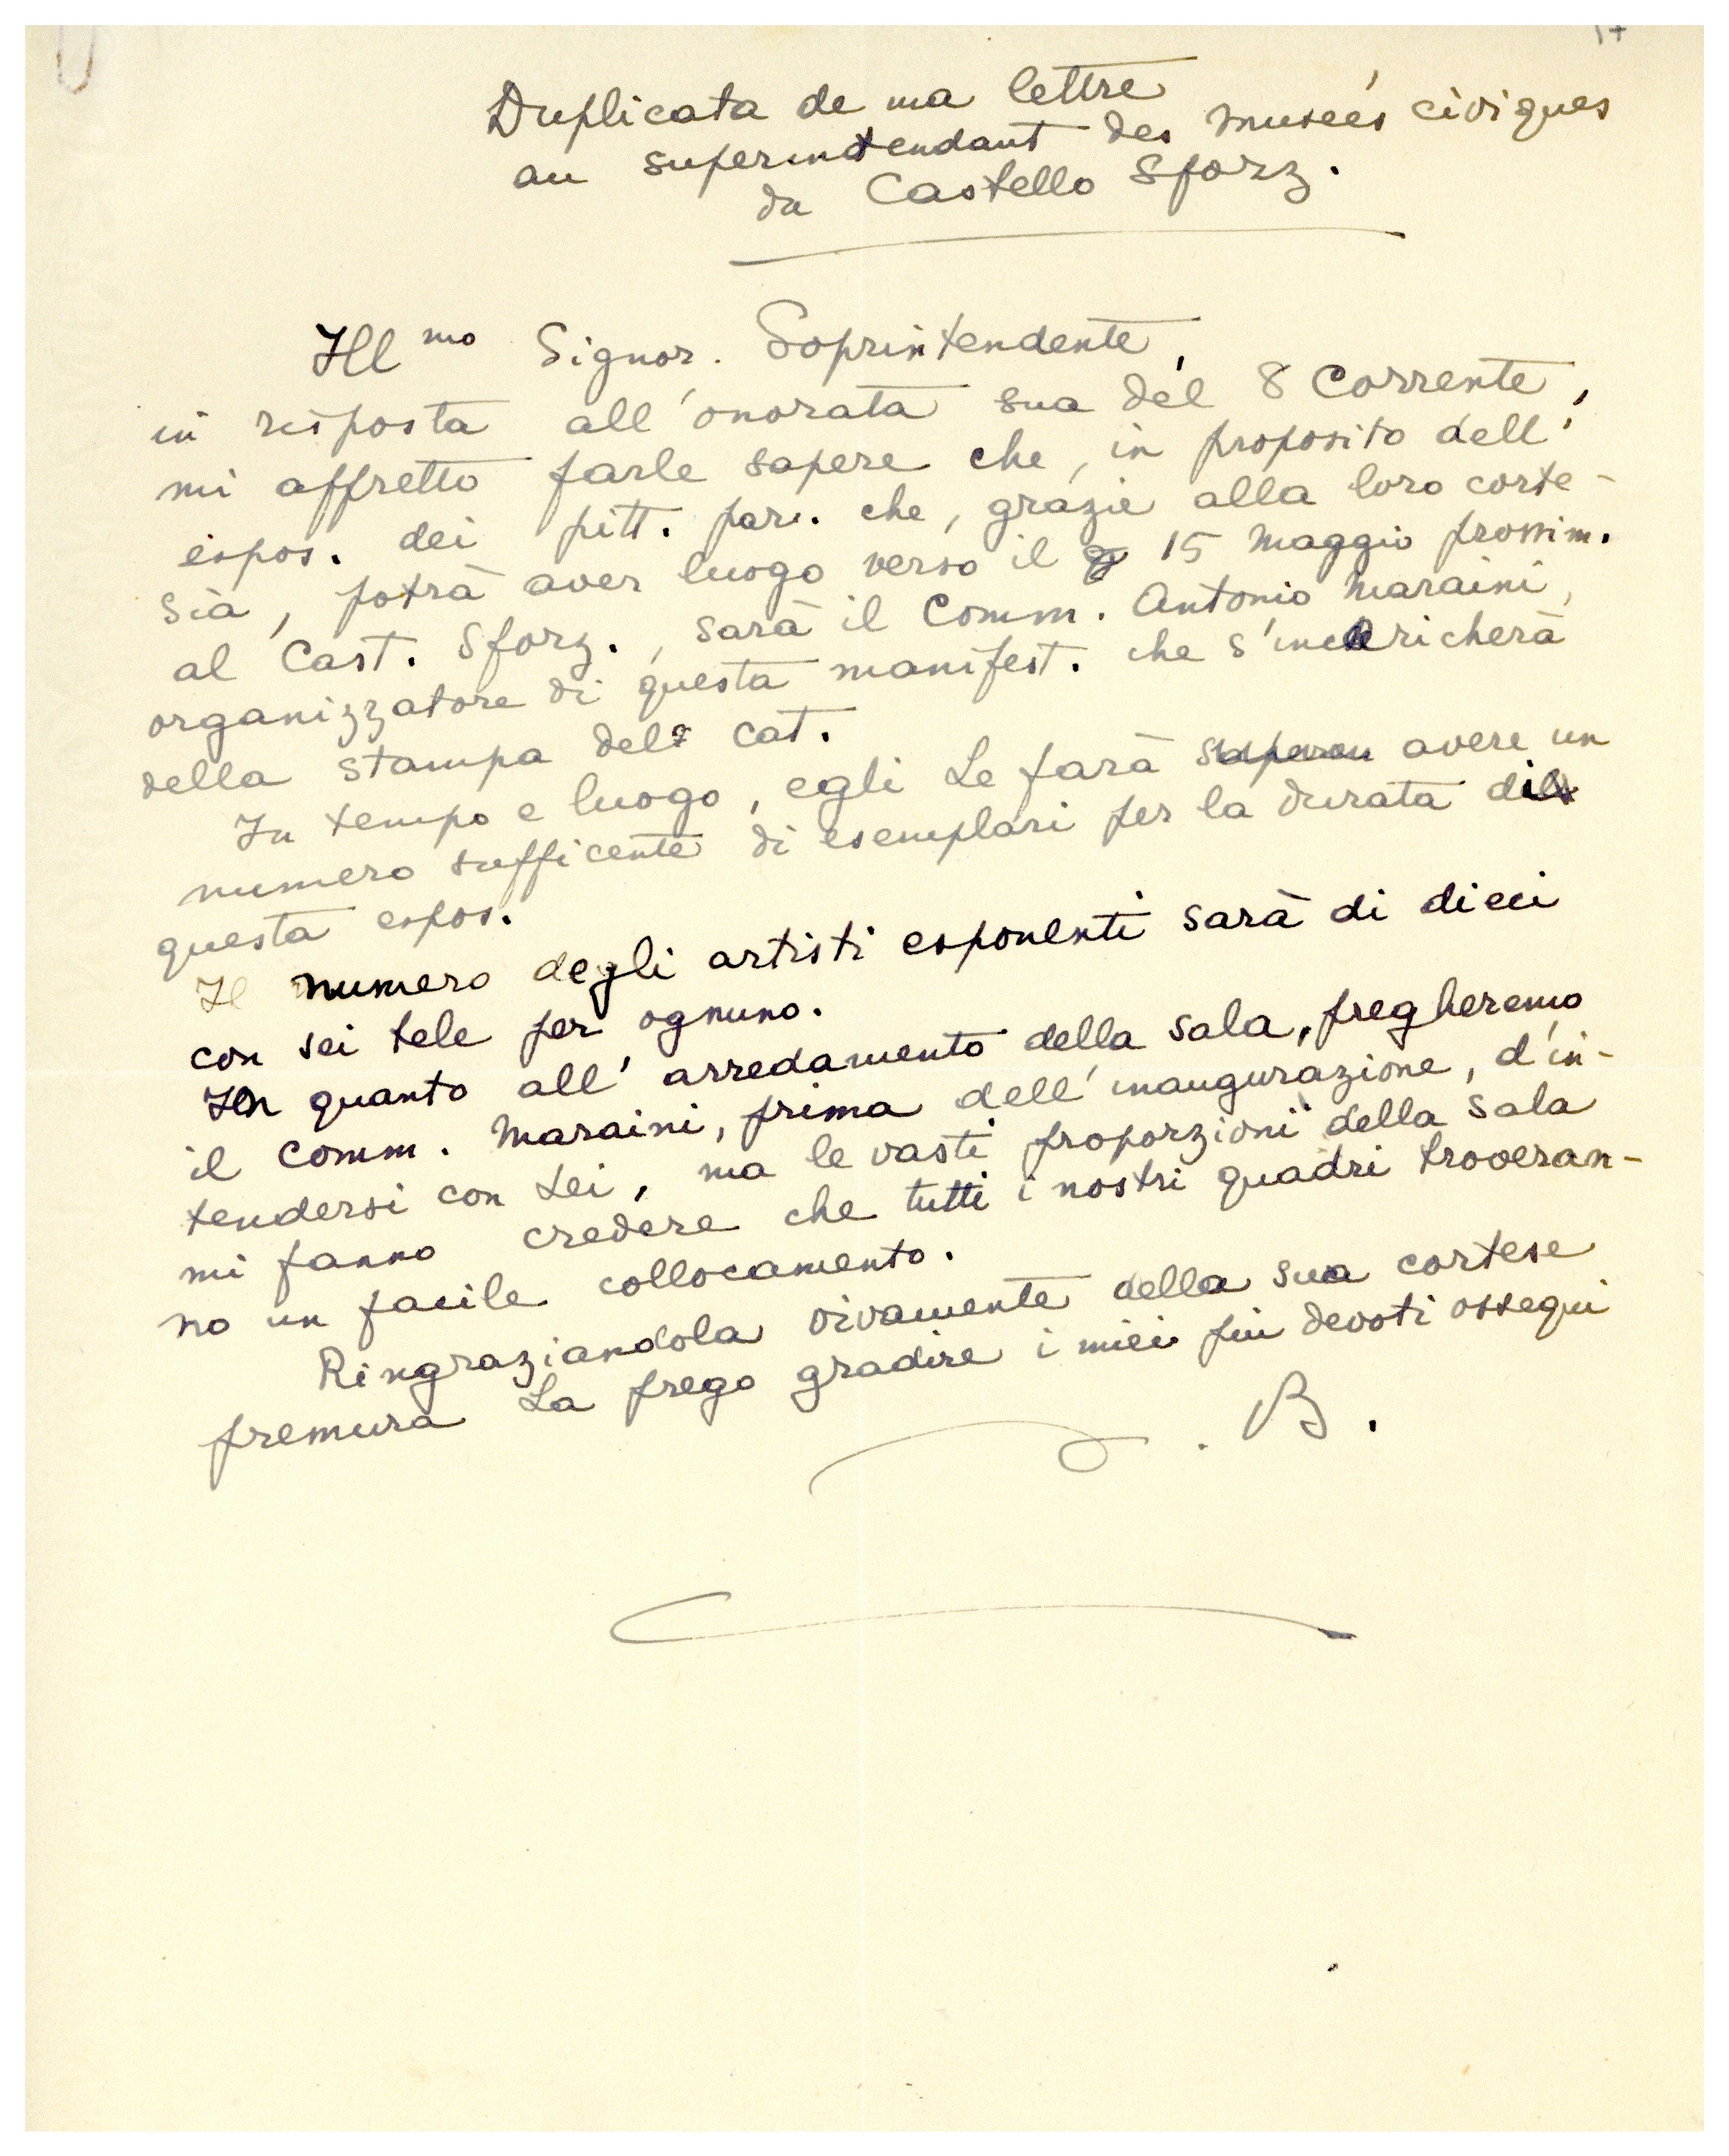 17
Duplicata de ma lettre
au superintendant des museés civiques
du Castello Sforz.
Ill mo Signor. Soprintendente,
in risposta all'onorata sua del 8 Corrente,
mi affretto farle sapere che, in proposito dell'
espos. dei pitt. par. che, grazie alla loro corte-
sia, potrà aver luogo verso il 15 Maggio prossim.
al Cast. Sforz., sarà il Comm. Antonio Maraini,
organizzatore di questa manifest. che s'incaricherà
della stampa del cat.
In tempo e luogo, egli Le farà avere un
numero sufficente di esemplari per la durata di
questa espos.
Il numero degli artisti esponenti sarà di dieci
con sei tele per ognuno.
In quanto all'arredamento della sala, pregheremo
il Comm. Maraini, prima dell'inaugurazione, d'in-
tendersi con Lei, ma le vasti proporzioni della sala
mi fanno credere che tutti i nostri quadri troveran-
no un facile collocamento.
Ringraziandola vivamente della sua cortese
premura La prego gradire i miei piu devoti ossequi
. B.